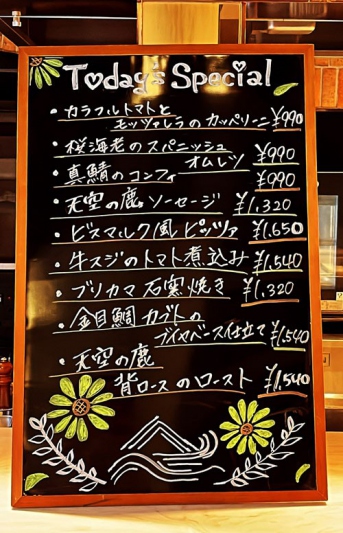 Today's Special
・カラフルトマトと
モッツァレラのカッペリーニ ¥990
・桜海老のスパニッシュ
オムレツ ¥990
・真鯖のコンフィ ¥990
・天空の鹿 ソーセージ ¥1,320
・ビスマルク風 ピッツァ ¥1,650
・牛スジのトマト煮込み ¥1,540
・ブリカマ 石窯焼き ¥1,320
・金目鯛 カブトの
ブイヤベース仕立て ¥1,540
・天空の鹿
背ロースのロースト ¥1,540